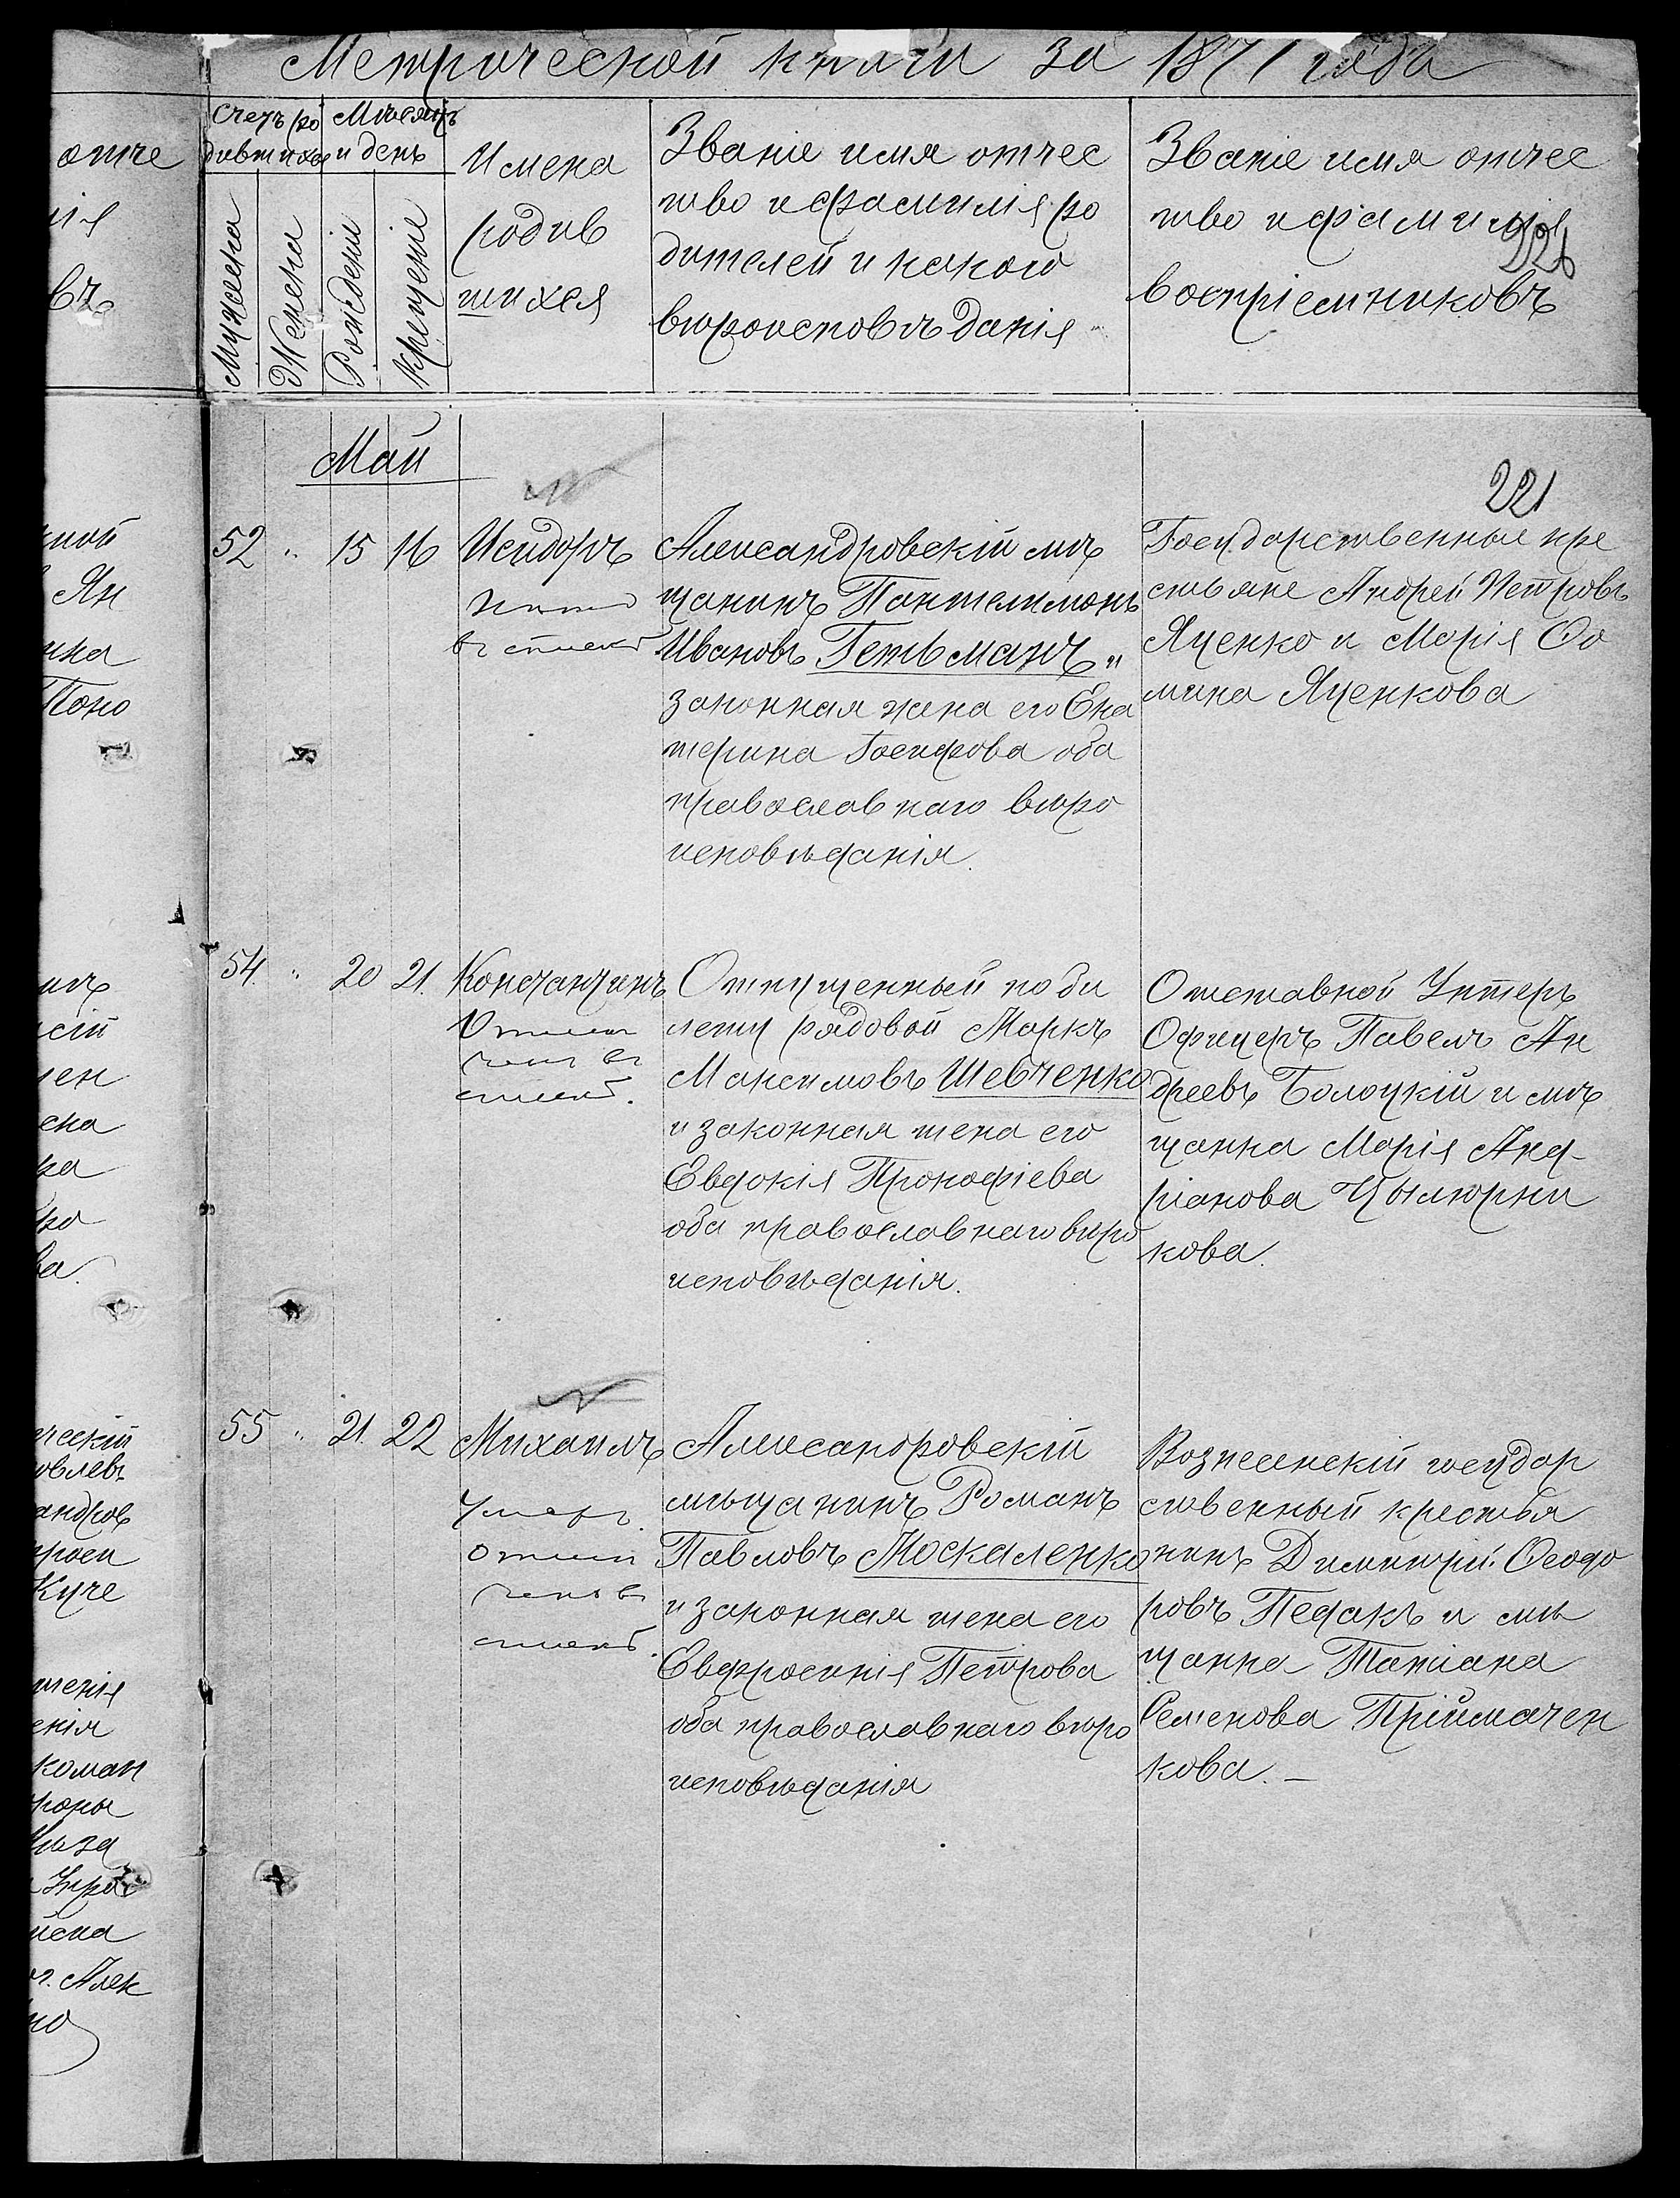 Метрической книги за 1871 года
Счетъ ро
дившихся
Мѣсяцъ
и день
Мужеска
Женска
Рожденія
Крещенія
Имена
родив
шихся
Званіе имя отчес
тво и фамилія ро
дителей и какого
вѣроисповѣданія
Званіе имя отчес
тво и фамилія
воспріемниковъ
226
отче
ія
въ
Май
221
52 " 15 16 Исидоръ
въ списке
Александровскій мѣ
щанинъ Пантелимонъ
Ивановъ Гетьманъ и
законная жена его Ека
терина Іосифова оба
православнаго вѣро
исповѣданія.
Государственные кре
стьяне Андрей Петровъ
Яценко и Марія Ѳо
мина Яценкова
54. " 20 21. Константинъ
Отме
чен въ
списке.
Отпущенный по би
лету рядовой Маркъ
Максимовъ Шевченко
и законная жена его
Евдокія Прокофіева
оба православнаго вѣро
исповѣданія.
Отставной Унтеръ
Офицеръ Павелъ Ан
дреевъ Болоцкій и мѣ
щанка Марія Анд-
ріанова Цылюрни
кова.
55 " 21. 22 Михаилъ
Умеръ.
отме
ченъ въ
списке.
Александровскій
мѣщанинъ Романъ
Павловъ Москаленко
и законная жена его
Евфросинія Петрова
оба православнаго вѣро
исповѣданія
Вознесенскій государ
ственный крестья
нинъ Димитрій Ѳеодо
ровъ Педакъ и мѣ
щанка Татіана
Семенова Пріймачен
кова. —
ной
Ян
ика
Поно
сій
лен
ена
ра
ко
ва.
ческій
овлевъ
андров
Куче
шенія
енія
коман
роны
Алек
но